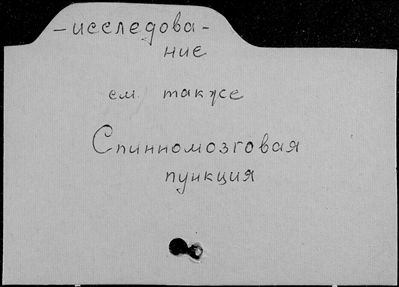 -исследова-
ние
см. также
Спинномозговая
пункция